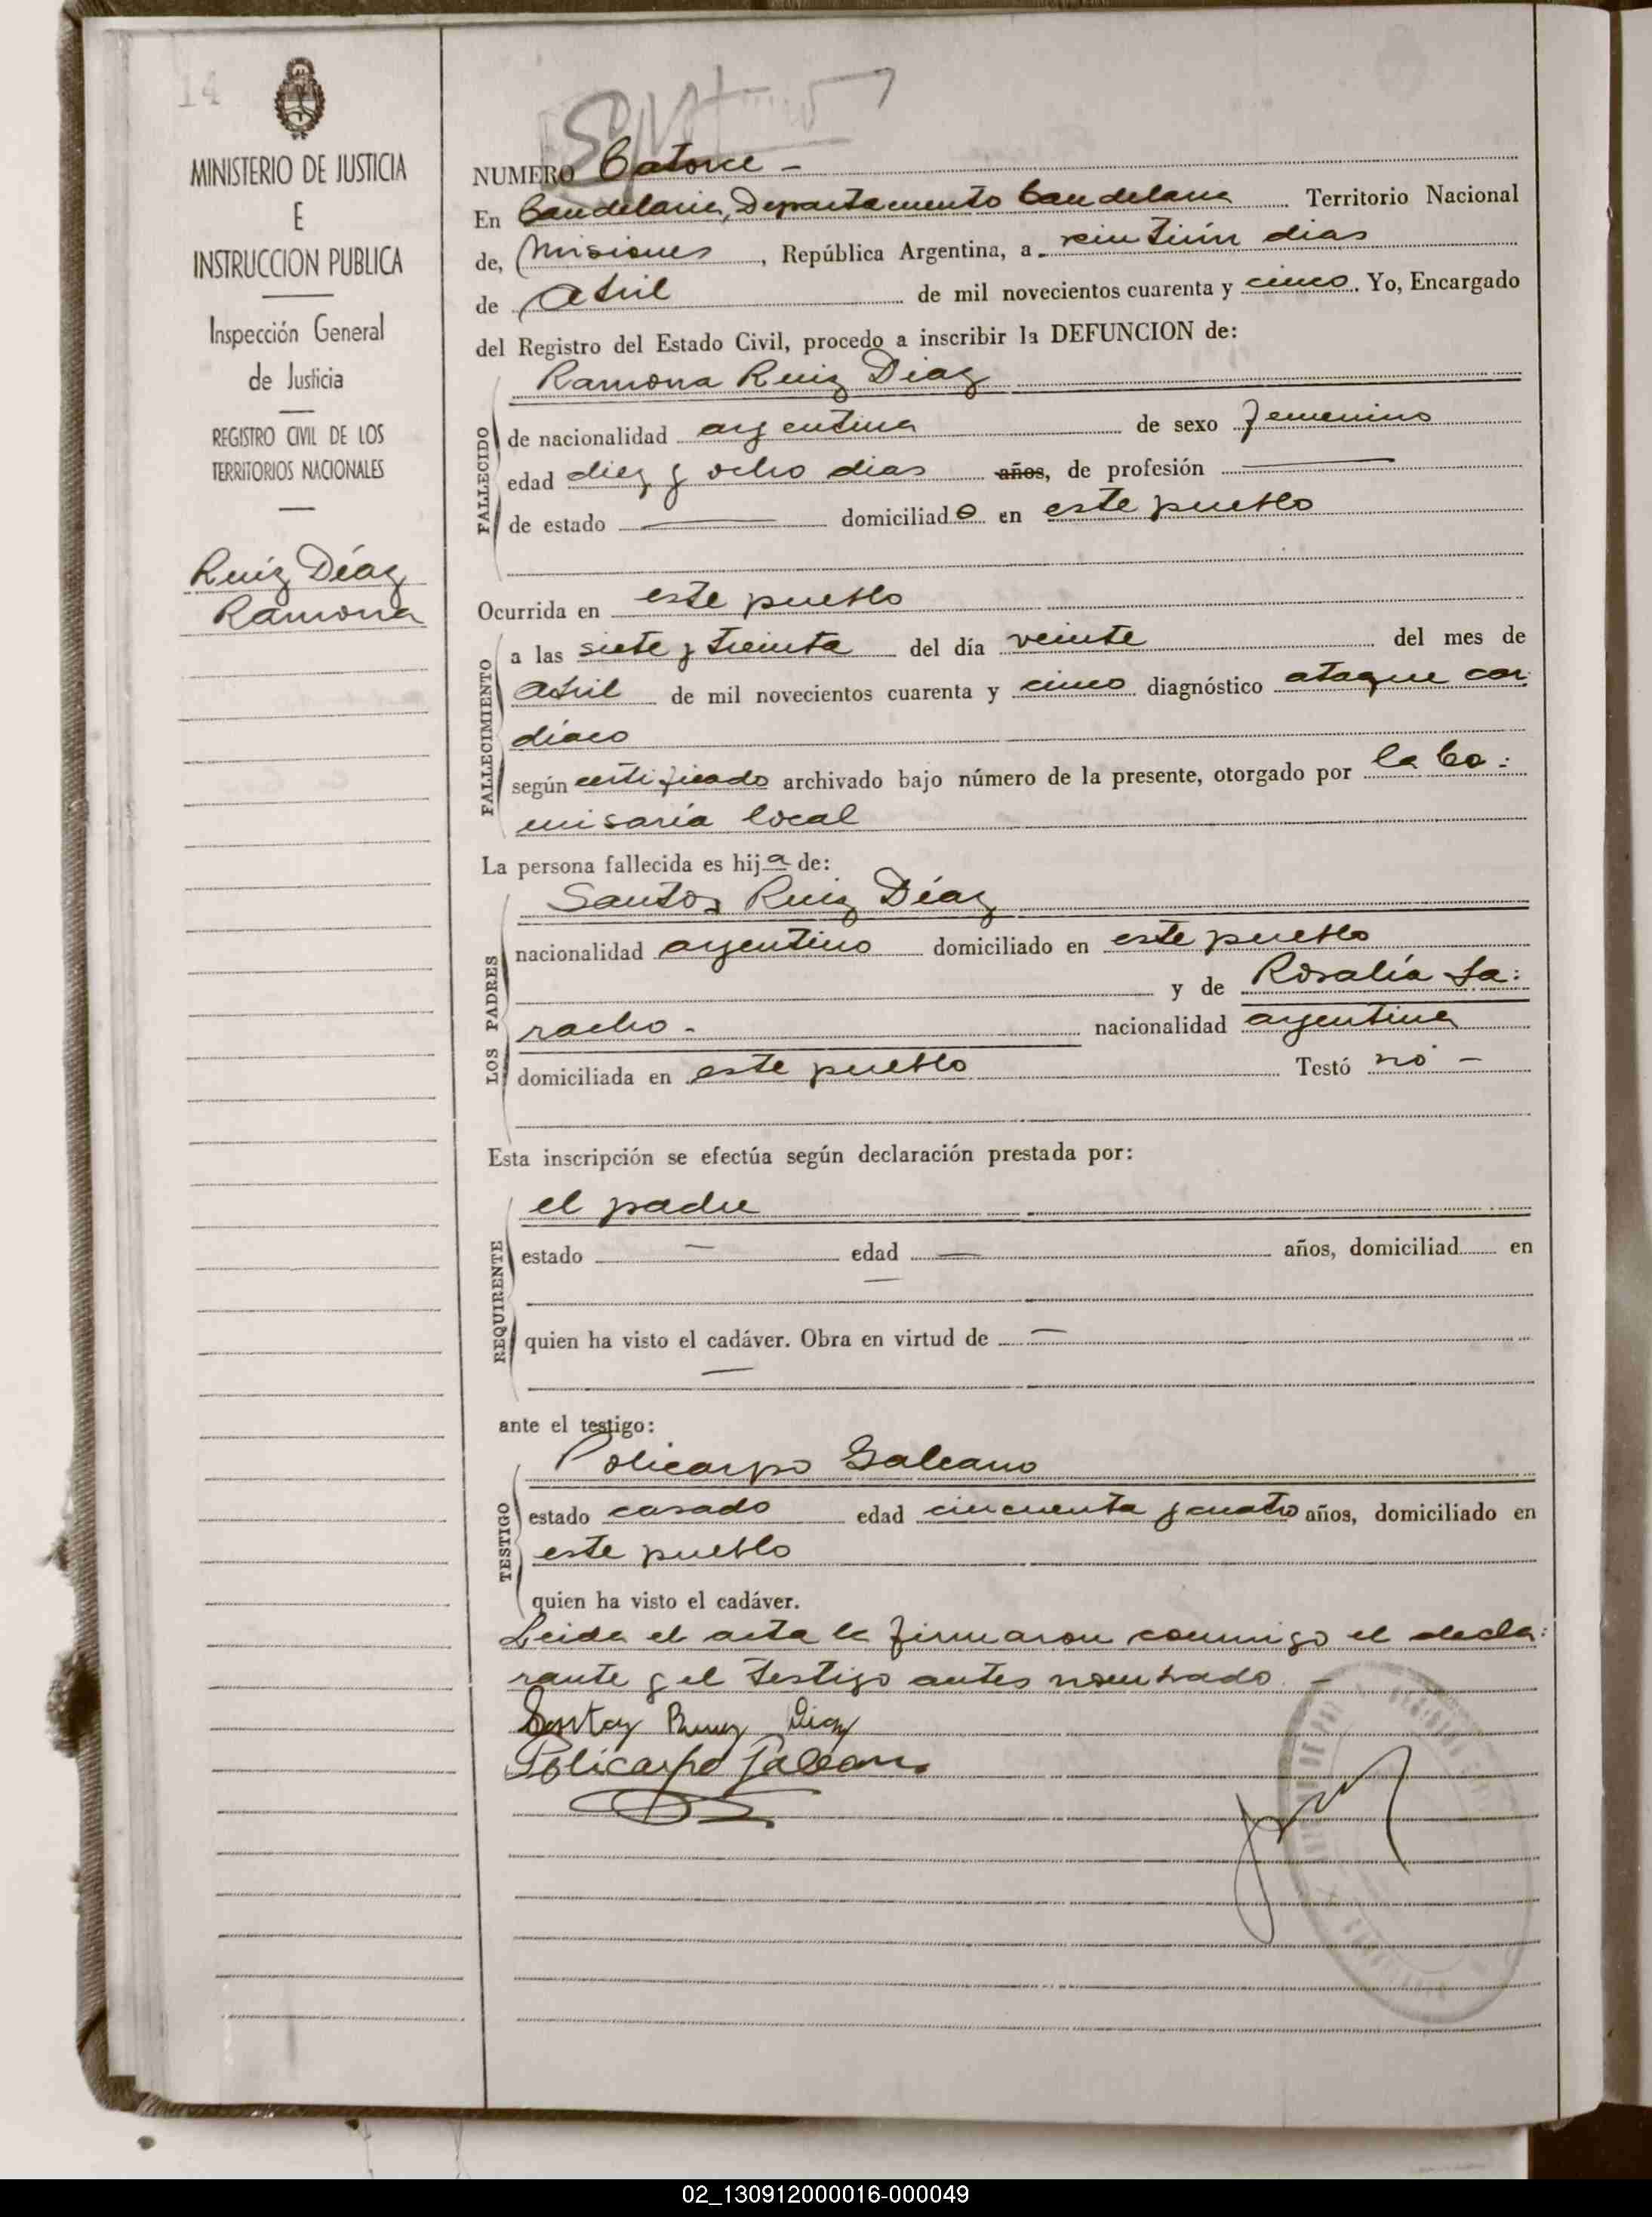 14
MINISTERIO DE JUSTICIA
E
INSTRUCCION PUBLICA
Inspección General
de Justicia
REGISTRO CIVIL DE LOS
TERRITORIOS NACIONALES
Ruiz Díaz
Ramona
NUMERO Catorce -
En Candelaria, Departamento Candelaria Territorio Nacional
de, Misiones, República Argentina, a veintiún dias
de Abril de mil novecientos cuarenta y cinco. Yo, Encargado
del Registro del Estado Civil, procedo a inscribir la DEFUNCION de:
Ramona Ruiz Diaz
FALLECIDO
de nacionalidad argentina de sexo femenino
edad diez y ocho dias años, de profesión —
de estado — domiciliado en este pueblo
Ocurrida en este pueblo
FALLECIMIENTO
a las siete y treinta del día veinte del mes de
Abril de mil novecientos cuarenta y cinco diagnóstico ataque car:
díaco
según certificado archivado bajo número de la presente, otorgado por la Co:
misaría local
La persona fallecida es hija de:
LOS PADRES
Santos Ruiz Díaz
nacionalidad argentino domiciliado en este pueblo
y de Rosalía Sa:
racho - nacionalidad argentina
domiciliada en este pueblo Testó no —
Esta inscripción se efectúa según declaración prestada por:
REQUIRENTE
el padre
estado — edad — años, domiciliad en
—
quien ha visto el cadáver. Obra en virtud de —
—
ante el testigo:
TESTIGO
Policarpo Galeano
estado casado edad cincuenta y cuatro años, domiciliado en
este pueblo
quien ha visto el cadáver.
Leida el acta la firmaron conmigo el decla:
rante y el testigo antes nombrado. —
Santos Ruiz Diaz
Policarpo Galeano
02_130912000016-000049